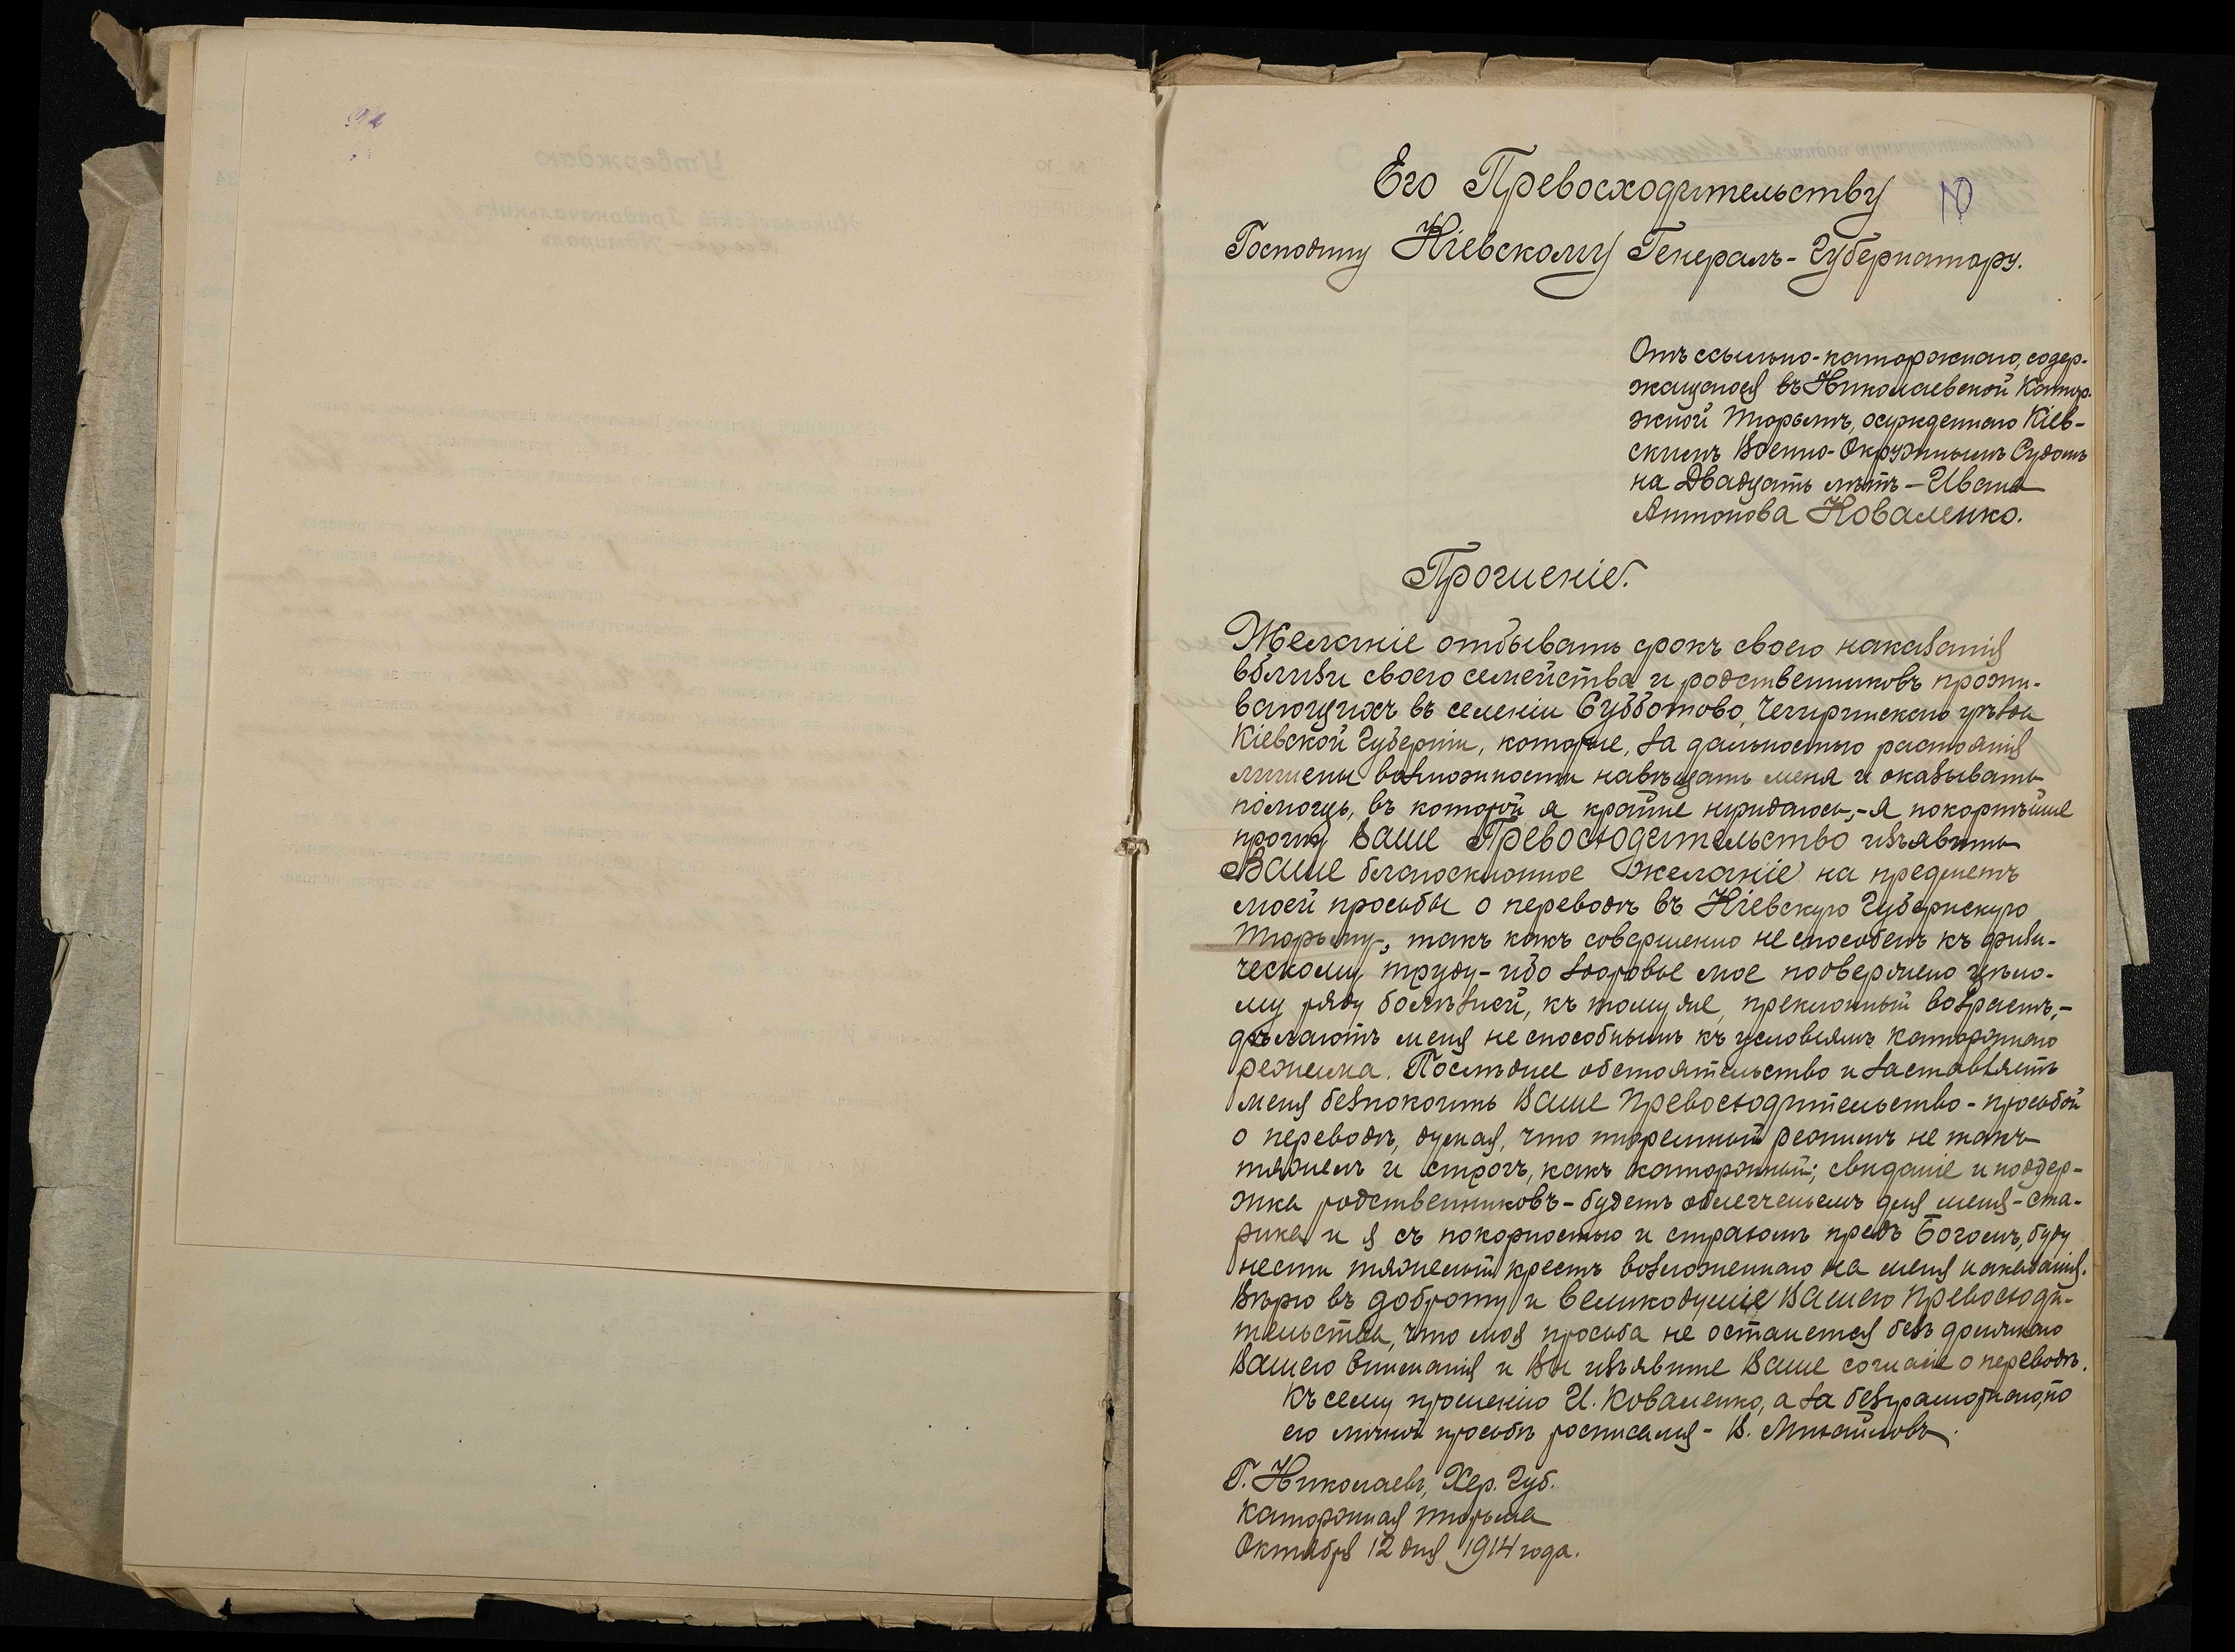 Его Превосходительству
Господину Кіевскому Генералъ-Губернатору.
Отъ ссыльно-каторжнаго, содер-
жащагося въ Николаевской Катор-
жной тюрьмѣ, осужденнаго Кіев-
скимъ Военно-Окружнымъ Судомъ
на Двадцать лѣтъ – Ивана
Антонова Коваленко.
Прошеніе.
Желаніе отбывать срокъ своего наказанія
вблизи своего семейства и родственниковъ прожи-
вающихъ въ селеніи Субботово, Чигиринскаго уѣзда
Кіевской Губерніи, которые, за дальностью растоянія
лишены возможности навѣщать меня и оказывать
помощь, въ которой я крайне нуждаюсь,-я покорнѣйше
прошу Ваше Превосходительство изъявить
Ваше благосклонное желаніе на предметъ
моей просьбы о переводѣ въ Кіевскую Губернскую
тюрьму, такъ какъ совершенно не способенъ къ физи-
ческому труду - ибо здоровье мое подвержено цѣло-
му ряду болѣзней, къ тому же, преклонный возрастъ,-
дѣлаютъ меня не способнымъ къ условіямъ каторжнаго
режима. Послѣднее обстоятельство и заставляетъ
меня безпокоить Ваше Превосходительство - просьбой
о переводѣ, думая, что тюремный режимъ не такъ
тяжелъ и строгъ, какъ каторжный; свиданіе и поддер-
жка родственниковъ - будетъ облегченьемъ для меня - ста-
рика и я съ покорностью и страхомъ предъ Богомъ, буду
нести тяжелый крестъ возложеннаго на меня наказанія.
Вѣрю въ доброту и великодушіе Вашего Превосходи-
тельства, что моя просьба не останется безъ должнаго
Вашего вниманія и Вы изъявите Ваше согласіе о переводѣ.
Къ сему прошенію И. Коваленко, а за безграмотнаго, по
его личной просьбѣ росписался - В. Михайловъ.
Г. Николаевъ, Хер. Губ.
Каторжная тюрьма
Октября 12 дня 1914 года.